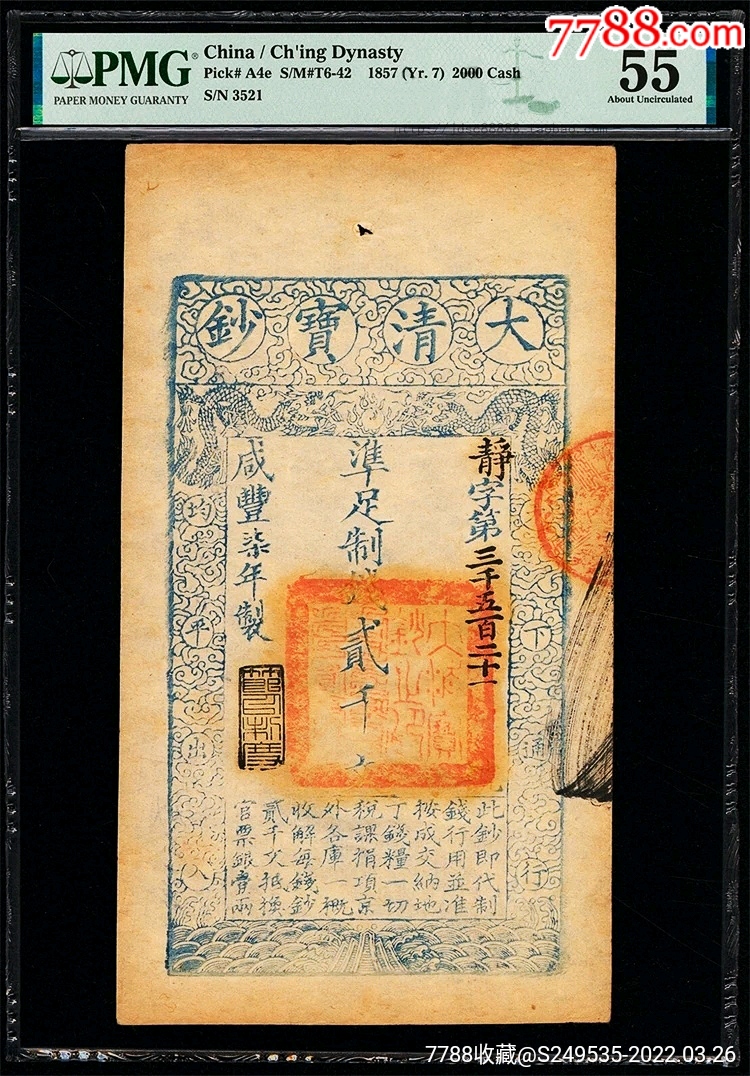 7788.com
PMG
PAPER MONEY GUARANTY
China / Ch'ing Dynasty
Pick# A4e S/M#T6-42 1857 (Yr. 7) 2000 Cash
S/N 3521
55
About Uncirculated
大清寶鈔
靜字第三千五百二十一
準足制錢貳千文
咸豐柒年製
天下通行
均平出入
此鈔即代制
錢行用並准
按成交納地
丁錢糧一切
稅課捐項京
外各庫一概
收解每錢鈔
貳千文抵換
官票銀壹兩
7788收藏@S249535-2022.03.26